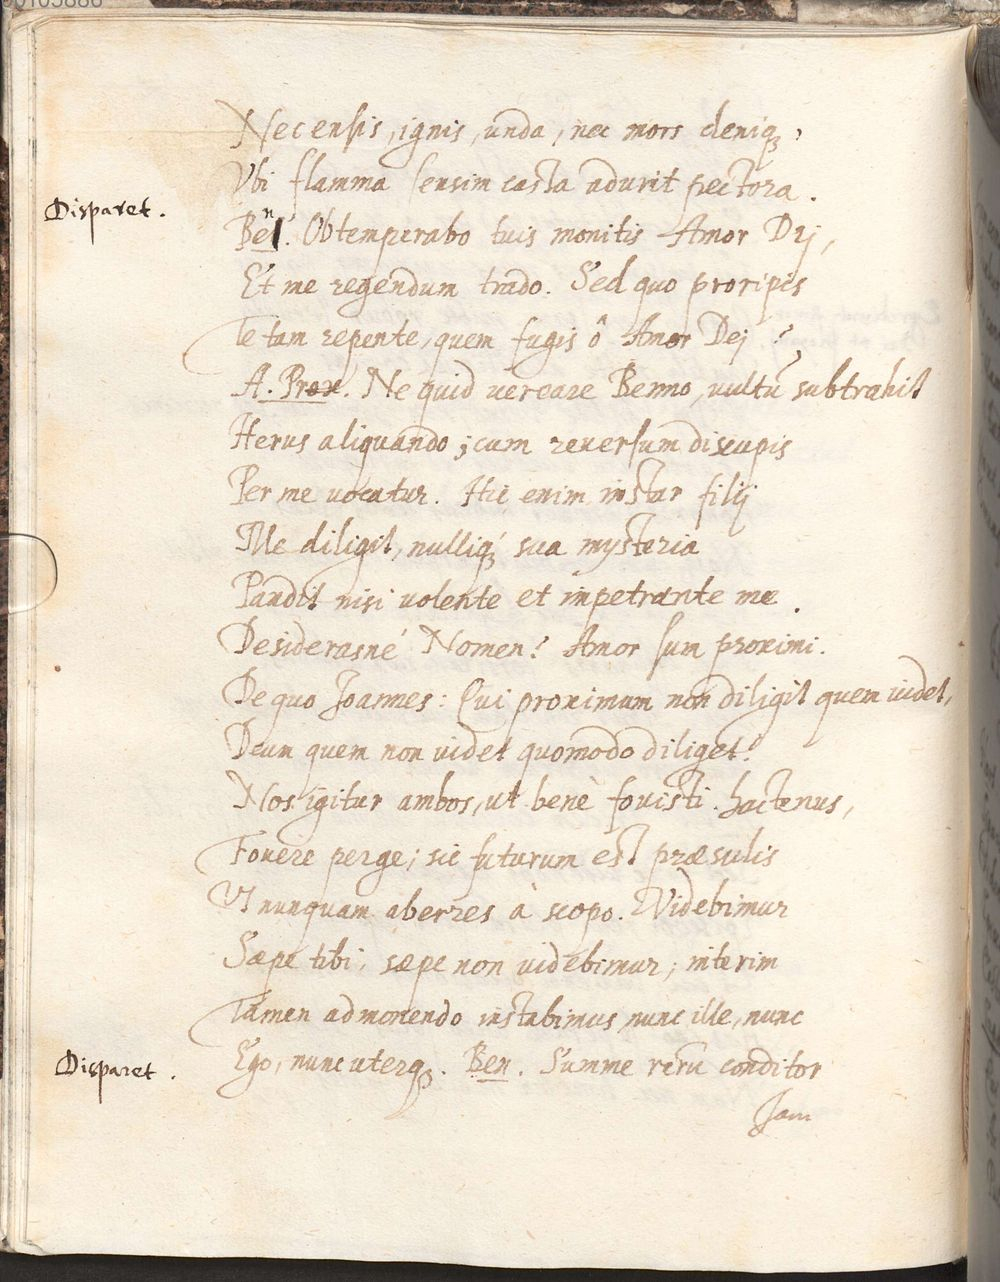 Nec ensis, ignis, unda, nec mors deniq,
Vbi flamma sensim casta adurit pectora.
Disparet.
Ben. Obtemperabo tuis monitis Amor Dij,
Et me regendum trado. Sed quo proripis
Te tam repente, quem fugis ô Amor Dej?
A. Prox. Ne quid vereare Benno, vultū subtrahit
Herus aliquando; cum reuersum discupis
Per me vocatur. Hic enim instar filij
Me diligit, nulliq́ sua mysteria
Pandit nisi volente et impetrante me.
Desiderasné Nomen? Amor sum proximi.
De quo Joannes: Qui proximum non diligit quem videt,
Deum quem non videt quomodo diliget?
Nos igitur ambos, ut benè fovisti hactenus,
Fovere perge; sic futurum est præsulis
Vt nunquam aberres à scopo. Videbimur
Sæpe tibi, sæpe non videbimur; interim
Tamen admonendo instabimus nunc ille, nunc
Ego, nunc uterq. Ben. Summe rerū conditor
Disparet.
Jam